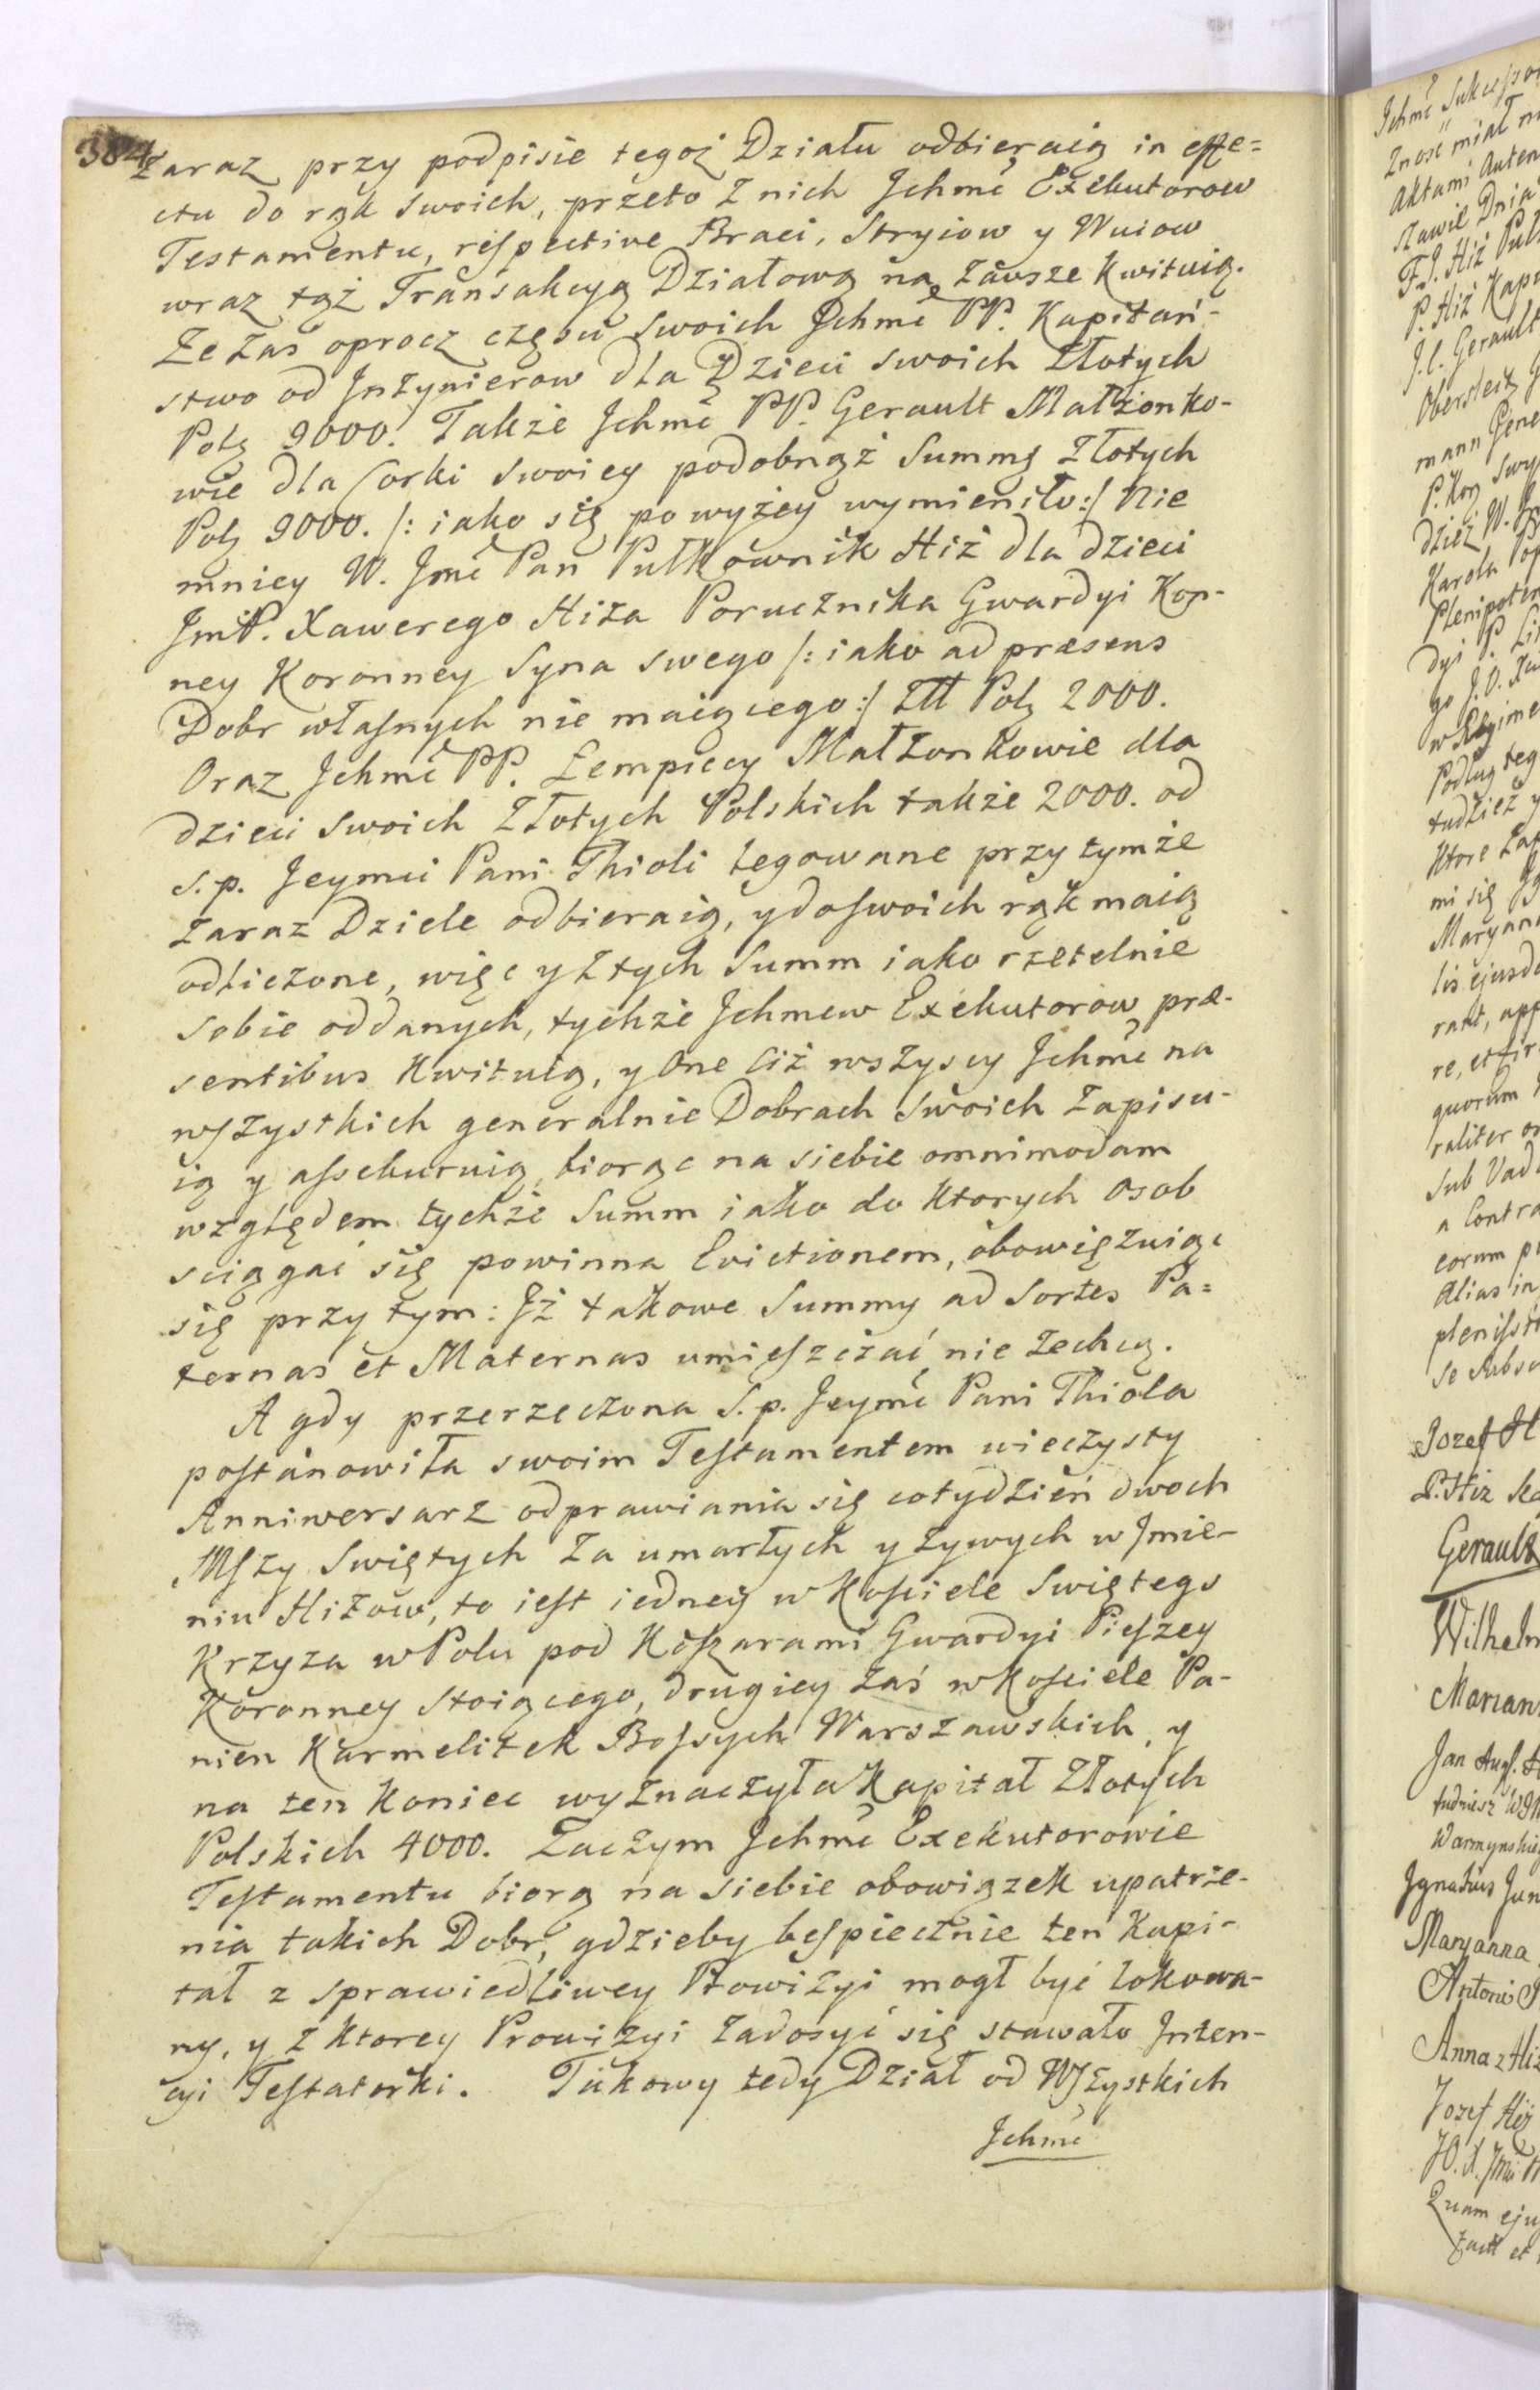 384
zaraz przy podpisie tegoż Działu odbieraią in effe=
ctu do rąk swoich, przeto z nich Jchmć Exekutorow
Testamentu, respective Braci, Stryiow y Wuiow
wraz tąż Transakcyą Działową na zawsze Kwituią.
Ze zaś oprocz częsci swoich Jchmć PP. Kapitań-
stwo od Jnżynierow dla Dzieci swoich Złotych
Polg 9000. Także Jchmć PP. Gerault Małżonko-
wie dla Corki swoiey podobnąż Summę Złotych
Polg 9000. /: iako się powyżey wymieniło :/ Nie
mniey W. Jmć Pan Pułkownik Hiż dla dzieci
JmćP. Xawerego Hiża Porucznika Gwardyi Kon-
ney Koronney Syna swego /: iako ad præsens
Dobr własnych nie maiącego :/ Złł Polg 2000.
Oraz Jchmć PP. Łempiccy Małżonkowie dla
dzieci swoich Złotych Polskich także 2000. od
s. p. Jeymci Pani Thioli legowane przy tymże
zaraz Dziele odbieraią, y do swoich rąk maią
odliczone, więc y z tych Summ iako rzetelnie
sobie oddanych, tychże Jchmciow Exekutorow præ-
sentibus Kwituią, y One ciż wszyscy Jchmć na
wszystkich generalnie Dobrach swoich zapisu-
ią y assekuruią, biorąc na siebie omnimodam
względem tychże Summ iako do ktorych Osob
sciągać się powinna Evictionem, obowięzuiąc
się przy tym: Jż takowe Summy ad Sortes Pa=
ternas et Maternas umieszczać nie zechcą.
A gdy przerzeczona S. p. Jeymć Pani Thiola
postanowiła swoim Testamentem wieczysty
Anniwersarz odprawiania się cotydzień dwoch
Mszy Swiętych za umarłych y żywych w Jmie-
niu Hiżow, to iest iedney w Kosciele Swiętego
Krzyża w Polu pod Koszarami Gwardyi Pieszey
Koronney stoiącego, drugiey zaś w Kosciele Pa-
nien Karmelitek Bossych Warszawskich, y
na ten koniec wyznaczyła Kapitał Złotych
Polskich 4000. Zaczym Jchmć Exekutorowie
Testamentu biorą na siebie obowiązek upatrze-
nia takich Dobr, gdzieby bespiecznie ten Kapi-
tał z sprawiedliwey Prowizyi mogł być lokowa-
ny, y z ktorey Prowizyi zadosyć się stawało Jnten-
cyi Testatorki. Takowy tedy Dział od Wszystkich
Jchmć
Jchmć Sukcesso
znosć miał
Aktami Auten
stawił Dnia
F. J. Hiż Puł
P. Hiż Kapi
J. C. Gerault
mann Gene
dzież W.
Karola Pop
Plenipoten
dyi P.
Podług teg
tudzież y
Ktore zaś
mi się
Maryan
lis ejusd
rant, app
re, et fir
quorum
raliter
Sub Vad
a Contra
eorum p
Alias in
plenissi
se Subsc
Jozef H
P. Hiz
Gerault
Wilhelm
Marian
Jan Aug.
tudziesz
Warmynskie
Jgnatius Jun
Maryanna
Antoni
Anna z Hiż
Jozef Hiż
Quam eju